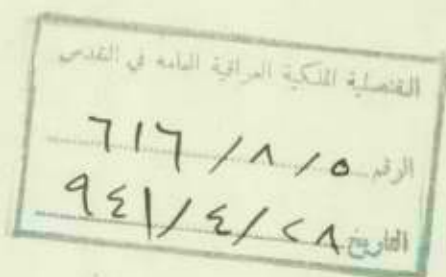 القنصلية الملكية العراقية العامة في القدس
الرقم ٥ / ٨ / ٦١٦
التاريخ ٢٨ / ٤ / ٩٤١